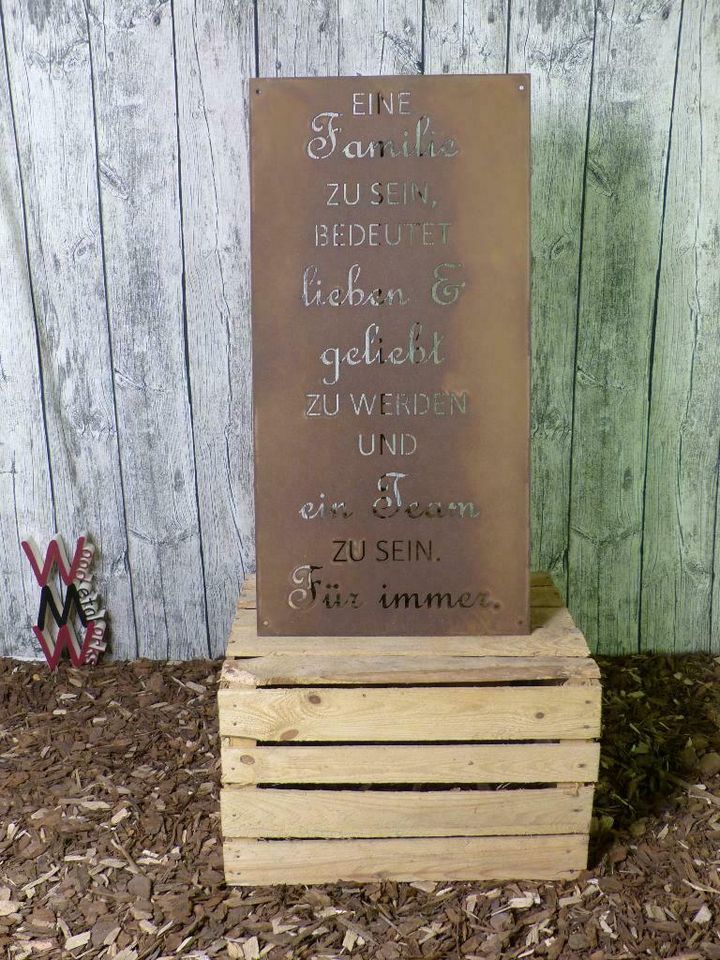 EINE
Familie
ZU SEIN,
BEDEUTET
lieben &
geliebt
ZU WERDEN
UND
ein Team
ZU SEIN.
Für immer.
WMW
WoodMetalWorks